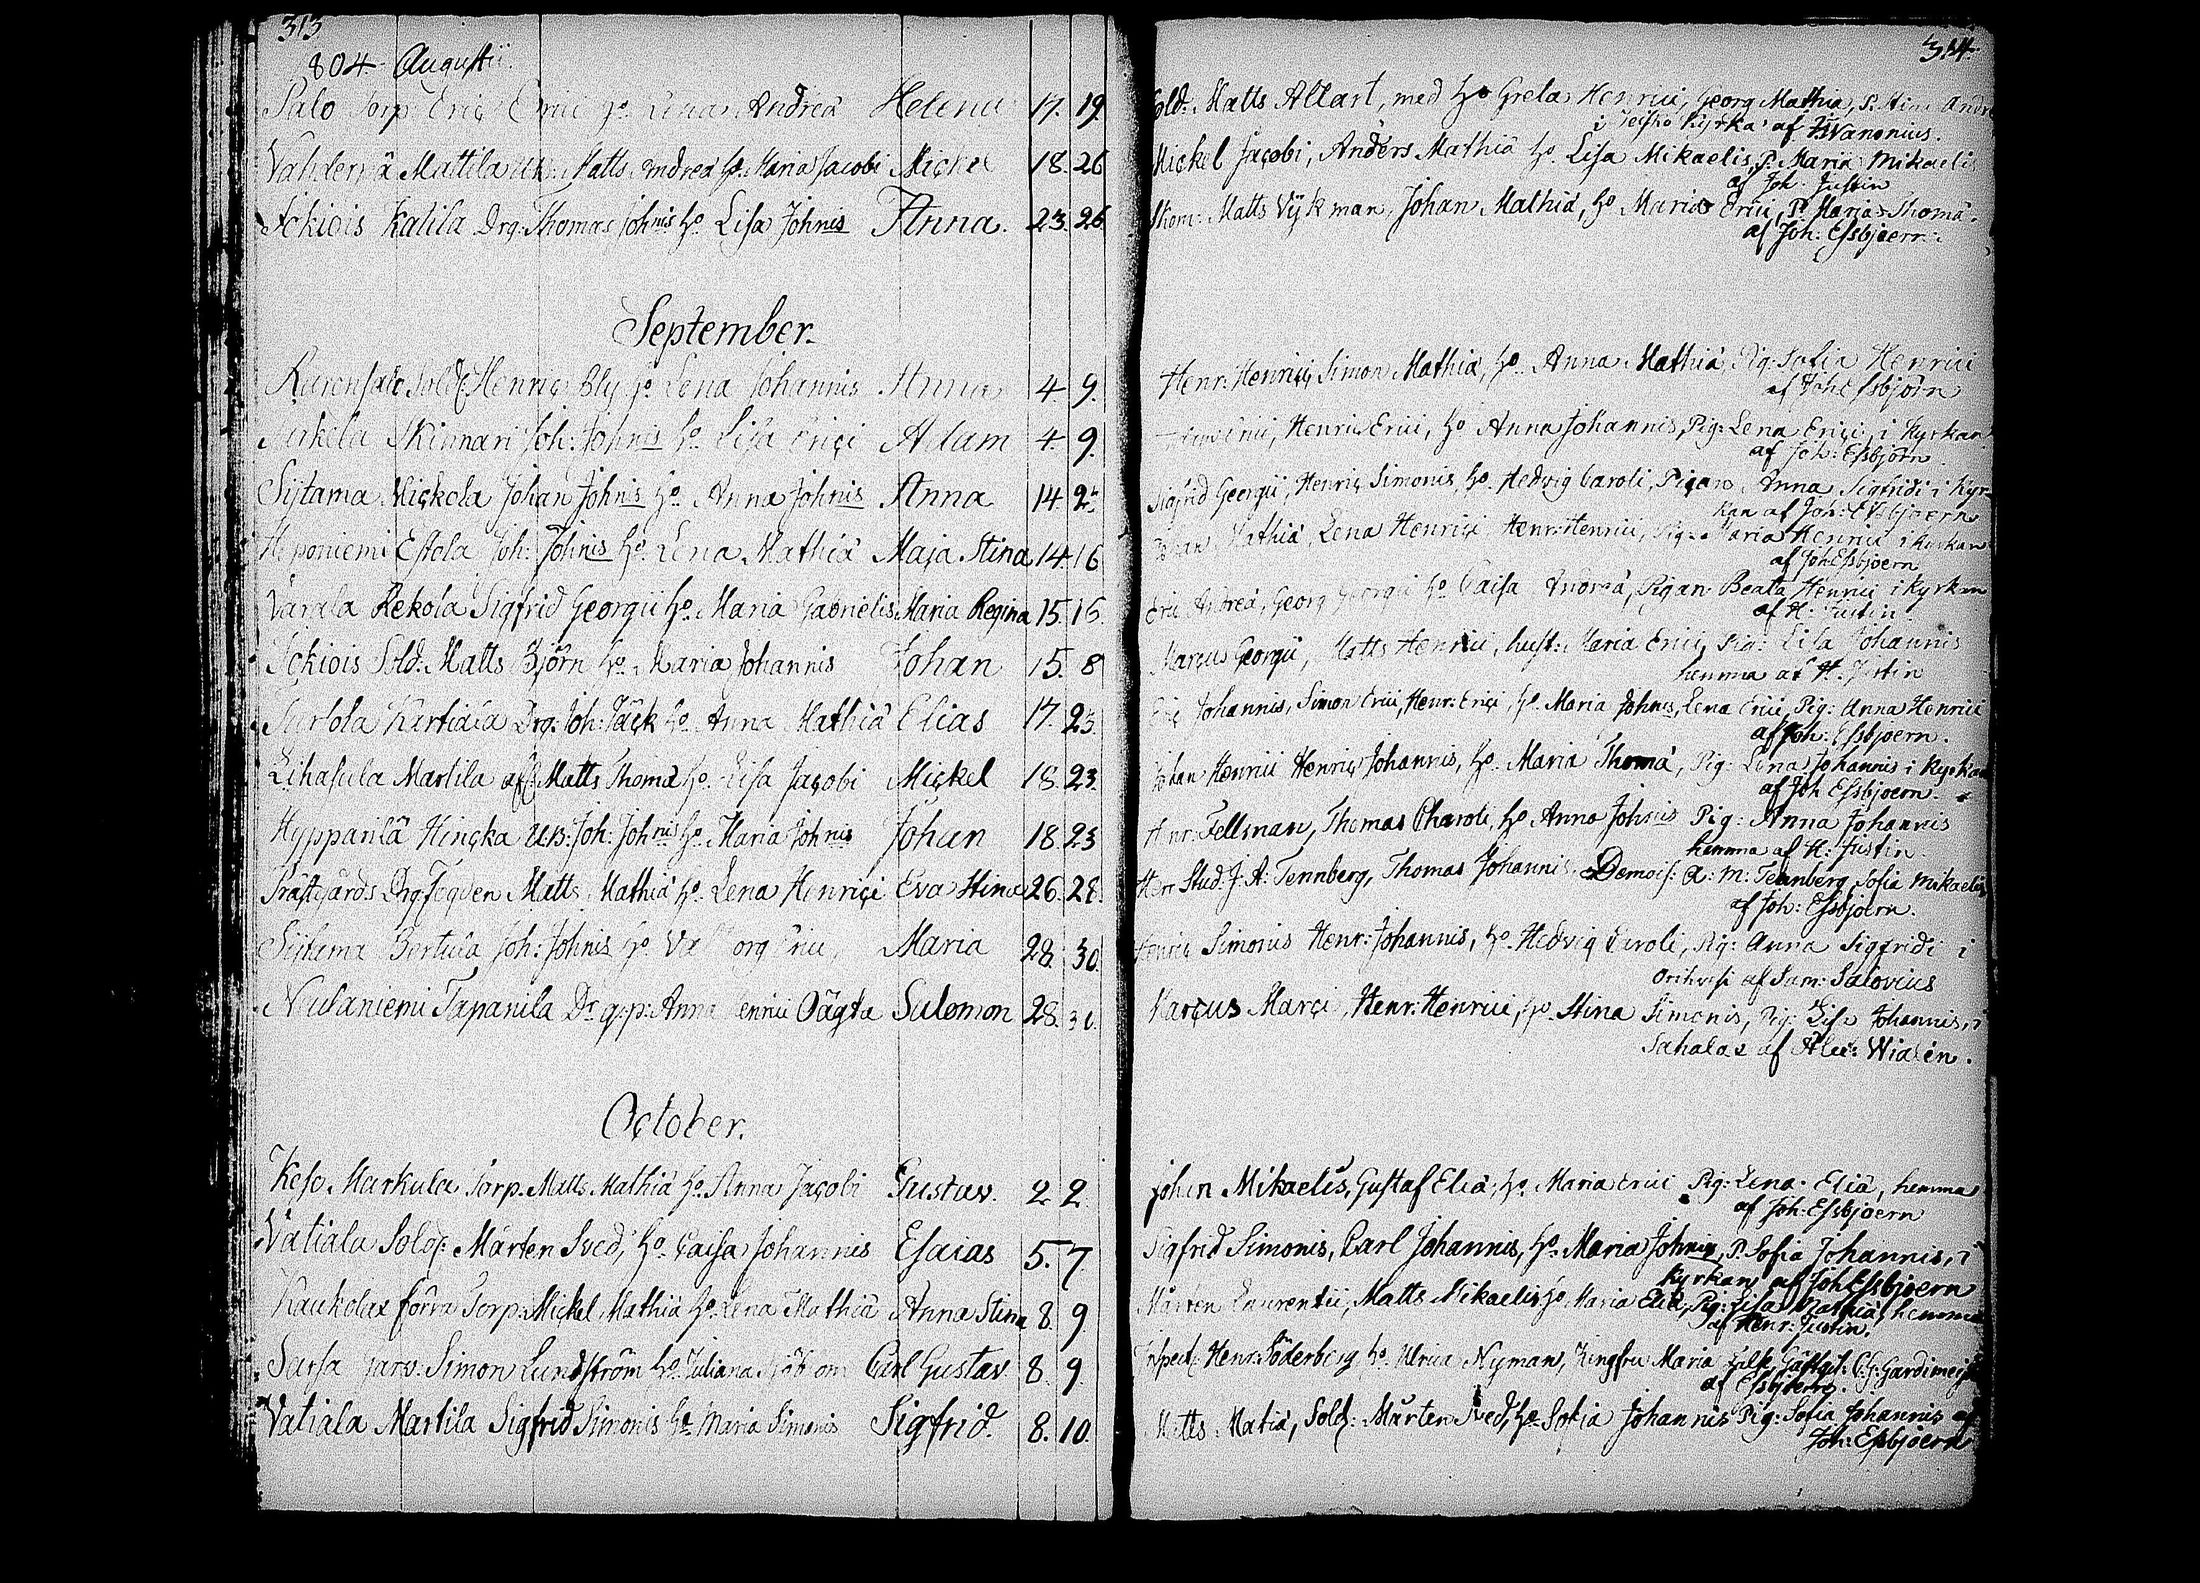 313
804. Augusti.
Salo Torp. Eric Erici ho. Lena Andreä Helena 17. 19.
Mattila Matts Andreä ho. Maria Jacobi Mickel 18. 26
Ickiois Katila Drg: Thomas Johnis ho. Lisa Johnis Anna. 23. 26
September.
Sold: Henric Bly ho. Lena Johannis Anna 4. 9.
Skinnari Joh: Johnis ho. Lisa Erici Adam 4. 9.
Sijtama Mickola Johan Johnis ho. Anna Johnis Anna 14.
Haponiemi Eskola Joh: Johnis ho. Lena Mathiä Maja Stina 14. 16
Rekola Sigfrid Georgii ho. Maria Gabrielis Maria Regina 15. 16.
Ickiois Sold: Matts Björn ho. Maria Johannis Johan 15. 8
Drg: Joh: Jäck ho. Anna Mathiä Elias 17. 23.
Lihasula Martila Matts Thomä ho. Lisa Jacobi Mickel 18. 23.
Hyppärilä Hincka Joh: Johnis ho. Maria Johnis Johan 18. 23
Prästgårds Drg. Matts Mathiä ho. Lena Henrici Eva Stina 26. 28.
Joh: Johnis ho. Maria 28. 30.
Tapanila Anna Oägta Salomon 28.
October.
Keso Markula Torp. Matts Mathiä ho. Anna Jacobi Gustav. 2 2.
Vatiala Sold: Mårten Sved, ho. Caisa Johannis Esaias 5. 7.
Kaukola förra Torp. Mickel Mathiä ho. Lena Mathiä Anna Stina 8. 9.
Sarsa Simon Lundström ho. Juliana Carl Gustav 8. 9.
Vatiala Martila Sigfrid Simonis ho. Maria Simonis Sigfrid. 8. 10.
314.
Sold: Matts Allart, med ho Greta Henrici, Georg Mathiä,
Kyrka af
Mickel Jacobi, Anders Mathiä ho. Lisa Mikaelis, P. Maria Mikaelis
af Joh: Justin
Thom: Matts Vykman, Johan Mathiä, ho Maria Erici, P. Maria Thomä.
af Joh: Essbjoern.
Henr: Henrici, Simon Mathiä, ho. Anna Mathiä, Pig: Sofia Henrici
af Joh: Essbjörn
Henric Erici, ho Anna Johannis, Pig: Lena Erici, i kyrkan
af Joh: Essbjörn
Sigfrid Georgii, Henric Simonis, ho. Hedvig Caroli, Pigan Anna Sigfridi i kyr-
kan af Joh: Essbjoern
Johan Mathiä, Lena Henrici, Henr: Henrici, Pig: Maria Henrici i kyrkan
af Joh: Essbjoern
Eric Andreä, Georg Georgii ho Caisa Andreä, Pigan Beata Henrici i kyrkan
af H: Justin
Marcus Georgii, Matts Henrici, hust: Maria Erici, Pig: Lisa Johannis
hemma af H. Justin
Eric Johannis, Simon Erici, Henr: Erici, ho. Maria Johnis, Lena Erici, Pig: Anna Henrici
af Joh: Essbjoern.
Johan Henrici Henric Johannis, ho. Maria Thomä, Pig: Lena Johannis i kyrkan
af Joh Essbjoern.
Henr: Fellman, Thomas Charoli, ho Anna Johnis Pig: Anna Johannis
hemma af H: Justin.
Herr Stud: J. A: Tennberg, Thomas Johannis, Demois: A: M: Tennberg Sofia Mikaelis
af Joh: Essbjoern.
Henric Simonis Henr: Johannis, ho. Hedvig Caroli, Pig: Anna Sigfridi i
Orihvesi af Sam: Salovius
Marcus Marci, Henr: Henrici, ho. Stina Simonis, Pig: Lisa Johannis, i
Sahalax af Alex: Widén.
Johan Mikaelis, Gustaf Eliä, ho. Maria Erici Pig: Lena Eliä, hemma
af Joh: Essbjoern
Sigfrid Simonis, Carl Johannis, ho. Maria Johnis, P. Sofia Johannis, i
kyrkan af Joh Essbjoern
Mårten Laurentii, Matts Mikaelis ho. Maria Eliä, Pig: Lisa Mathiä, hemma
af Henr: Justin.
Inspect: Henr: Söderberg ho. Ulrica Nyman, Jungfru Maria
af Essbjoern.
Matts Matiä, Sold: Mårten Sved, ho. Sofia Johannis Pig: Sofia Johannis af
Joh: Essbjoern